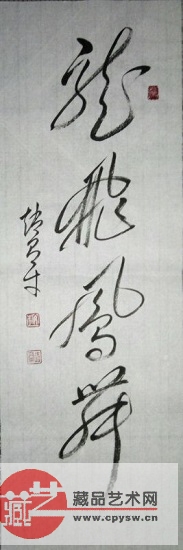 龍飛鳳舞
藏艺
藏品艺术网
www.cpysw.cn